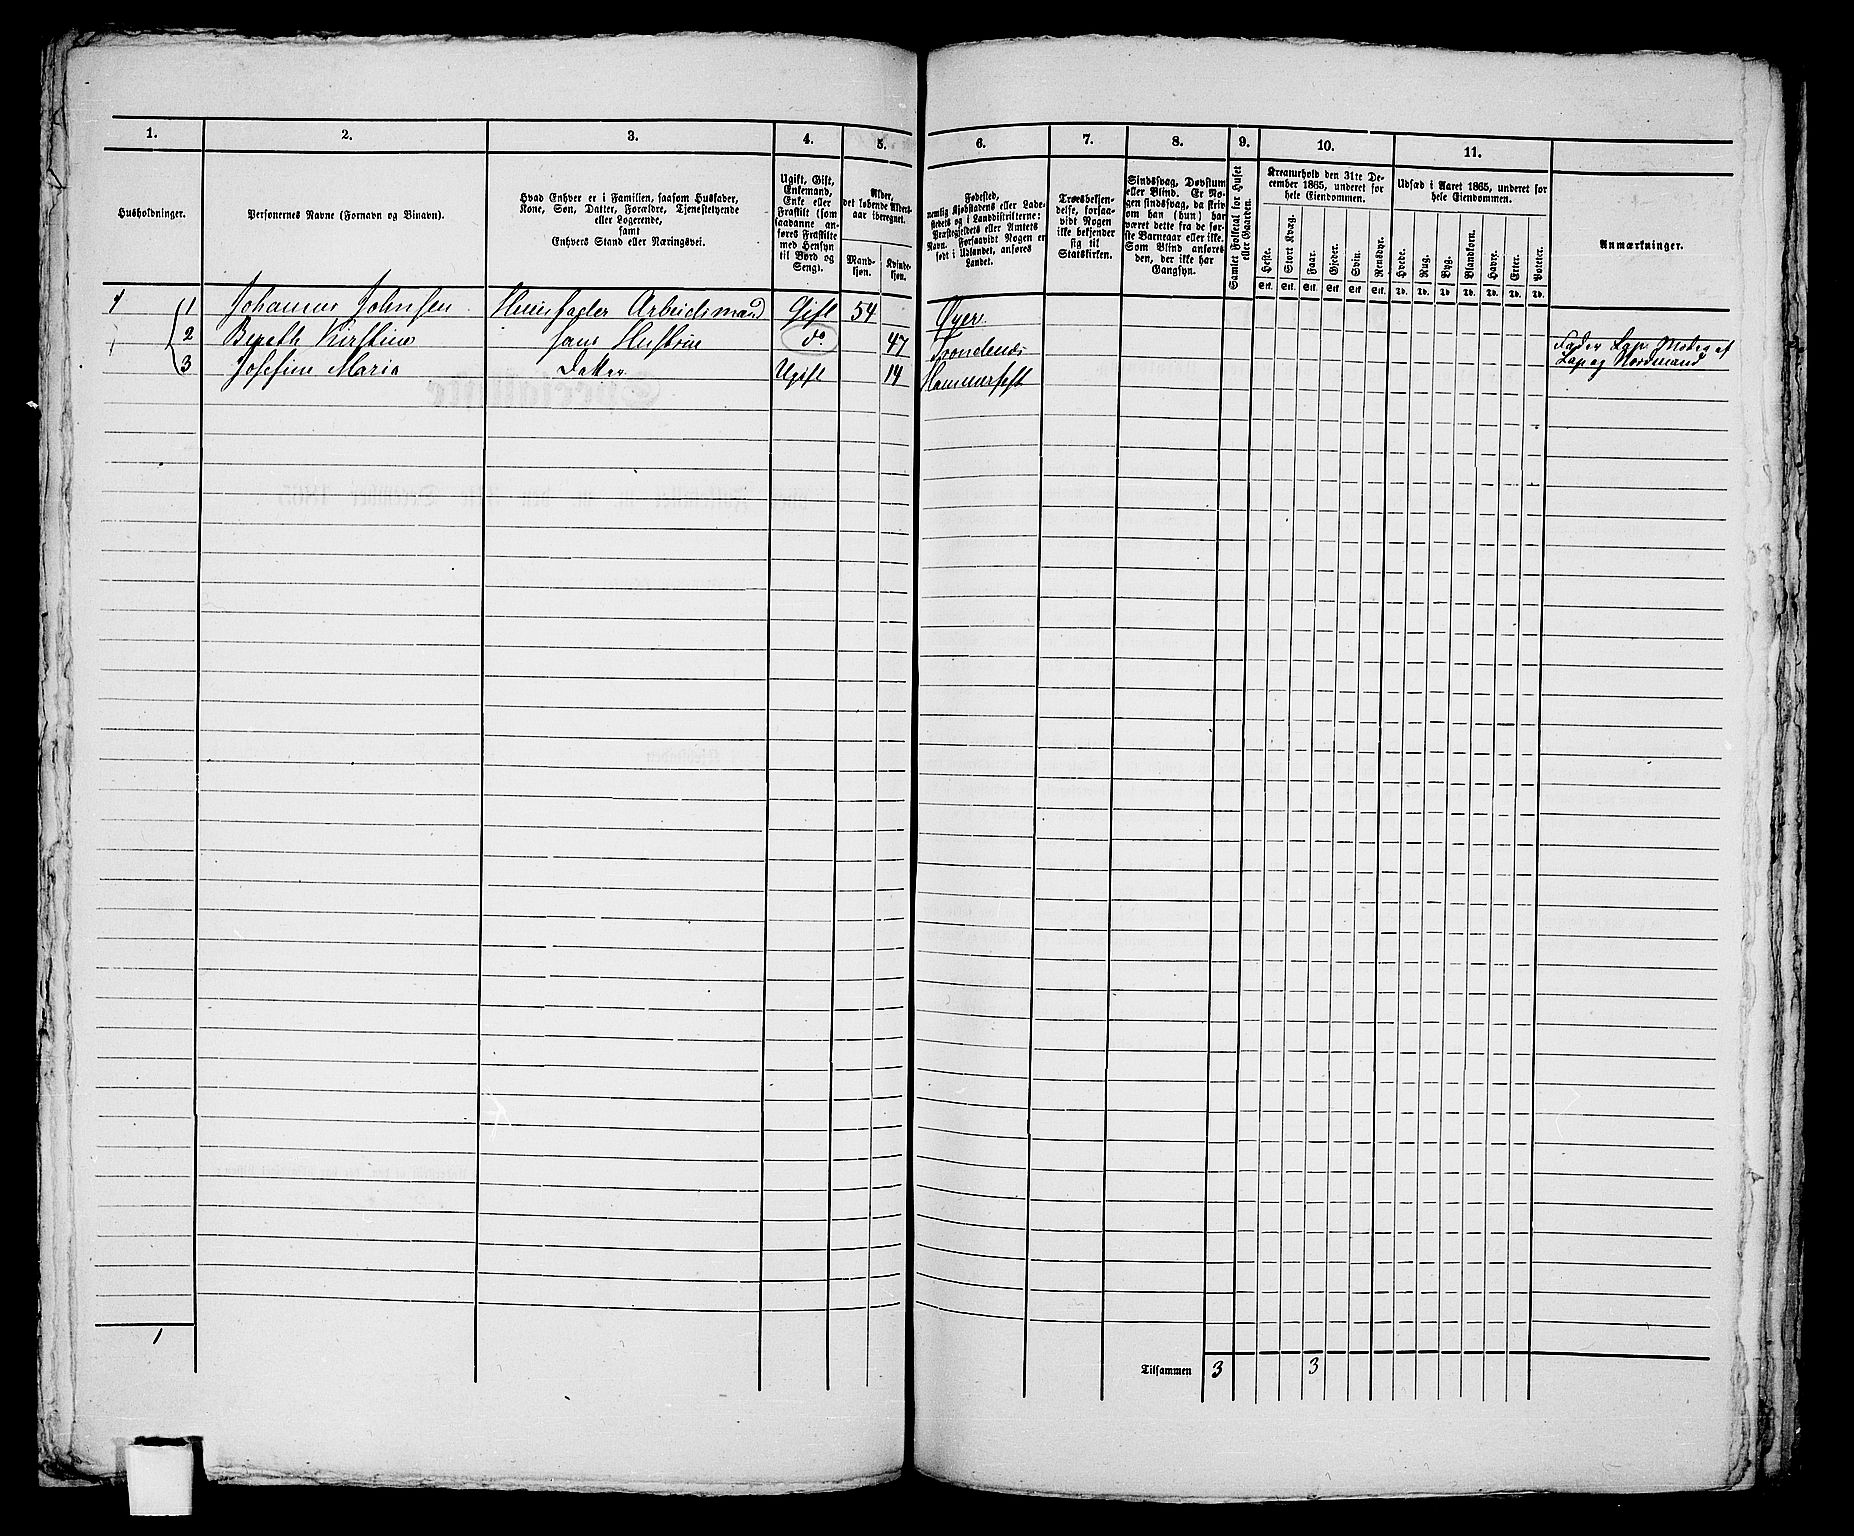 1. 2. 3. 4. 5. 6. 7. 8. 9. 10. 11.
Husholdninger.
Personernes Navne (Fornavn og Binavn).
Hvad Enhver er i Familien, saasom Husfader,
Kone, Søn, Datter, Forældre, Tjenestetyende
eller Logerende,
samt
Enhvers Stand eller Næringsvei.
Ugift, Gift,
Enkemand,
Enke eller
Fraskilt (som
saadanne an-
føres Fraskilte
med Hensyn
til Bord og
Seng).
Alder,
det løbende Alders-
aar iberegnet.
Mand-
kjøn.
Kvinde-
kjøn.
Fødested,
nemlig Kjøbstadens eller Lade-
stedets og i Landdistrikterne:
Præstegjeldets eller Amtets
Navn. Forsaavidt Nogen er
født i Udlandet, anføres
Landet.
Troesbekjen-
delse, forsaa-
vidt Nogen
ikke bekjender
sig til
Statskirken.
Sindssvag, Døvstum
eller Blind. Er No-
gen sindssvag, da skriv
om han (hun) har
været dette fra de før-
ste Barneaar eller ikke.
Som Blind anføres
den, der ikke har
Gangsyn.
Samlet Folketal for Huset
eller Gaarden.
Kreaturhold den 31te De-
cember 1865, underet for
hele Eiendommen.
Heste.
Stort Kvæg.
Faar.
Gjeder.
Sviin.
Rensdyr.
Stk. Stk. Stk. Stk. Stk. Stk.
Udsæd i Aaret 1865, underet for
hele Eiendommen.
Hvede.
Rug.
Byg.
Blandkorn.
Havre.
Erter.
Poteter.
Td. Td. Td. Td. Td. Td. Td.
Anmærkninger.
1 1 Johannes Johnsen Huusfader Arbeidsmand Gift 54 Øyer
2 Bereth Kirstine hans Hustrue do 47 Trondenæs Fader Lap. Moder af
Lap og Nordmand
3 Josefine Maria Datter Ugift 14 Hammerfest
1
Tilsammen 3 3